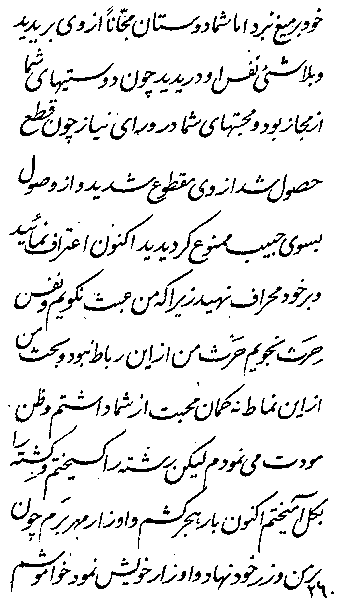 خود بر میغ نبرد اما شما دوستان مجّاناً از وی بریدید
و بلاشئی نفس او دریدید چون دوستیهای شما
از مجاز بود و محبتهای شما در ورای نیاز چون قطع
حصول شد از وی مقطوع شدید و از وصول
بسوی حبیب ممنوع گردیدید اکنون اعتراف نمائید
و بر خود محراف نهید زیرا که من عبث نگویم و نفس
حرث نجویم حرث من از این رباط نبود و بحث من
از این نماط نه گمان محبت از شما داشتم و ظن
مودت می نمودم لیکن رشته را گسیختم و کشته را
بگل آمیختم اکنون بار هجر کشم و اوزار مهر برم چون
بر من وزر خود نهاد و اوزار خویش نمود خواموشم
۲۶۰